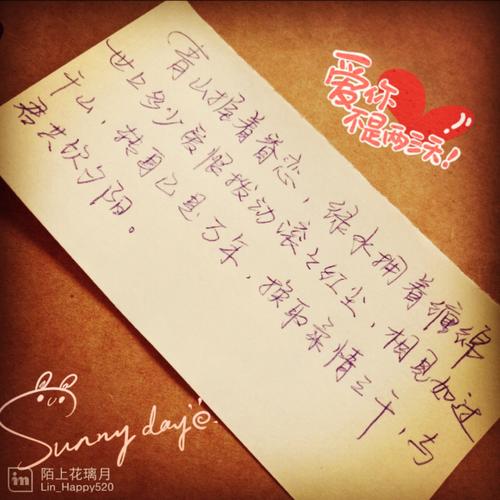 青山据着眷恋，绿水拥着缠绵
世上多少爱恨拨动滚々红尘，相见如过
千山，转身已是万年，换取柔情三千，与
君共饮夕阳。
爱你
不是两三天!
Sunny day
in 陌上花璃月
Lin_Happy520